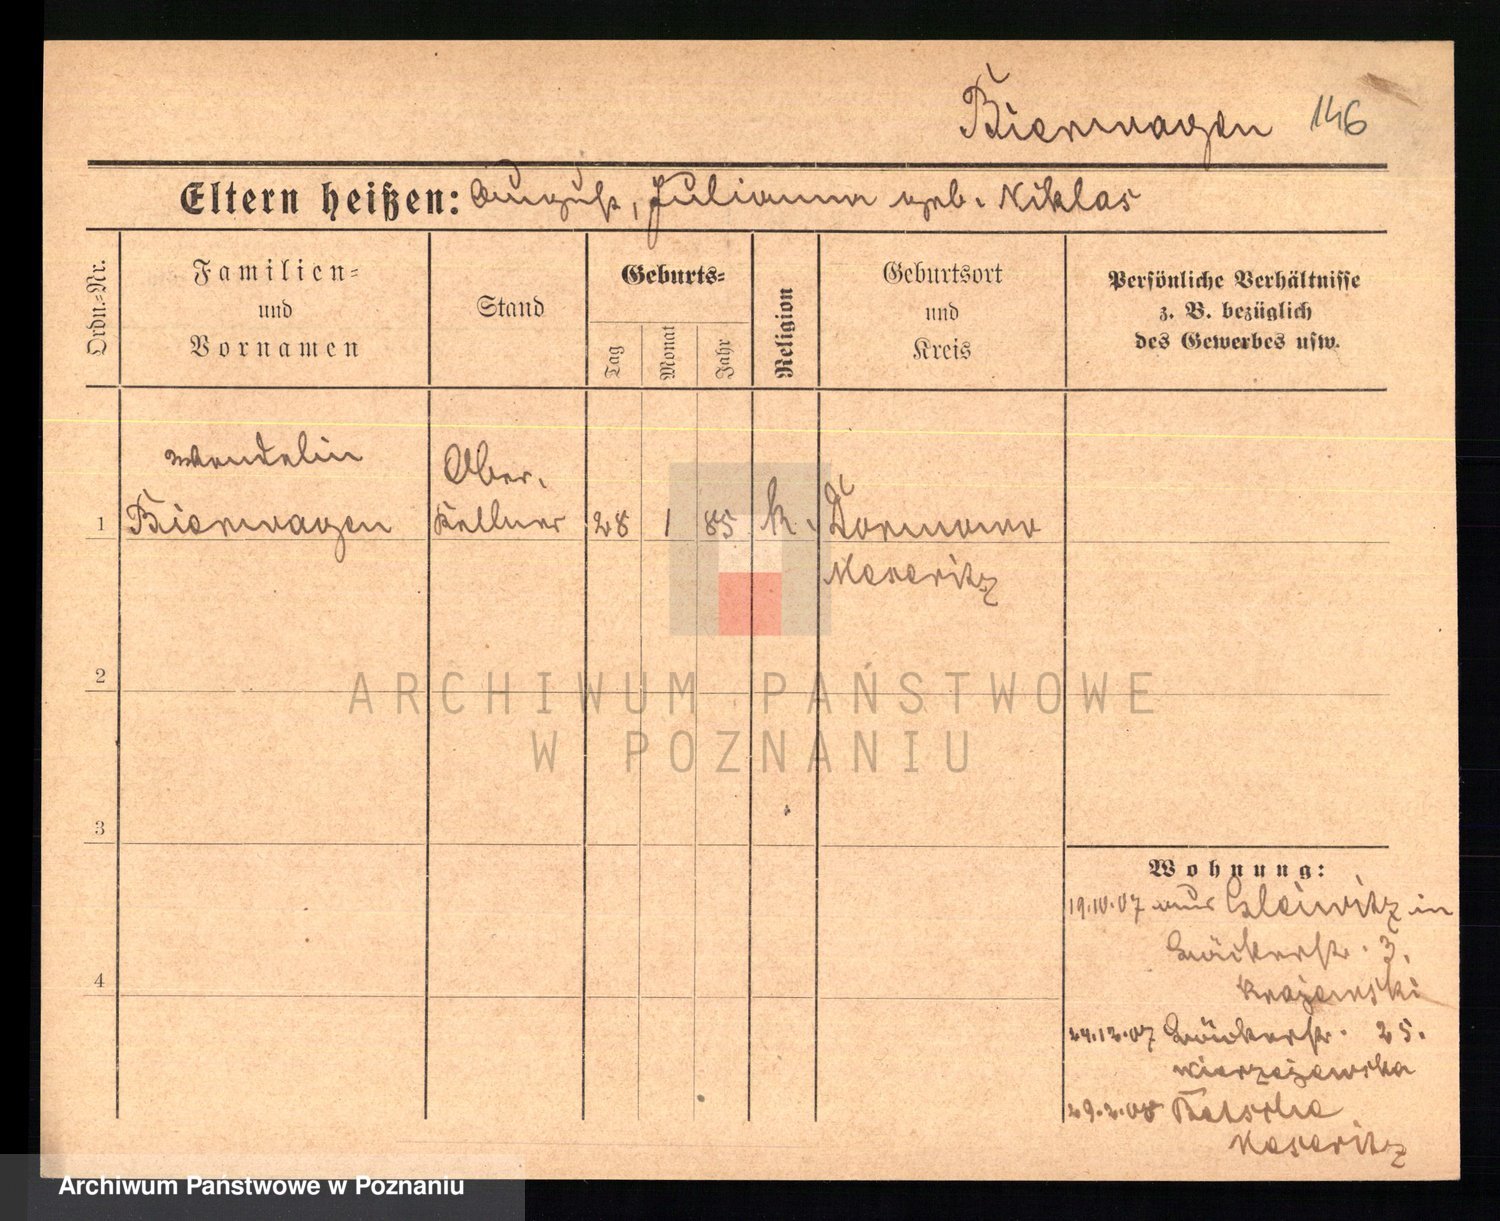 Bierwagen 146
Eltern heißen: August, Julianna geb. Niklas
Ordn.-Nr.
Familien-
und
Vornamen
Stand
Geburts-
Tag
Monat
Jahr
Religion
Geburtsort
und
Kreis
Persönliche Verhältnisse
z. B. bezüglich
des Gewerbes usw.
Wendelin
Ober-
1 Bierwagen Kellner 28 1 85 k. Dormowo
Meseritz
2
3
4
Wohnung:
19.10.07 aus Gleiwitz in
Bäckerstr. 3.
Krajewski
24.12.07 Bäckerstr. 25.
Wierzejewska
29.2.08 Betsche
Meseritz
ARCHIWUM PAŃSTWOWE
W POZNANIU
Archiwum Państwowe w Poznaniu